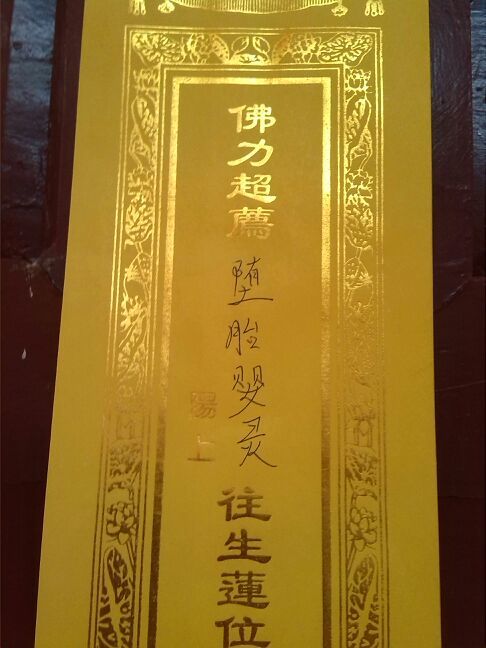 佛力超薦堕胎婴灵往生蓮位
陽上